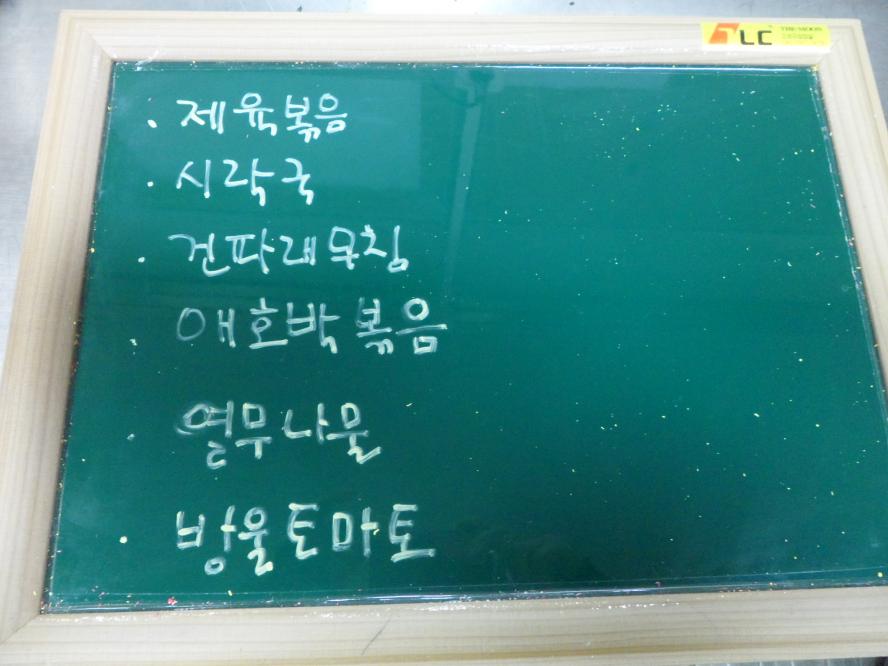 TLC
· 제육볶음
· 시락국
· 건파래무침
· 애호박볶음
· 열무나물
· 방울토마토